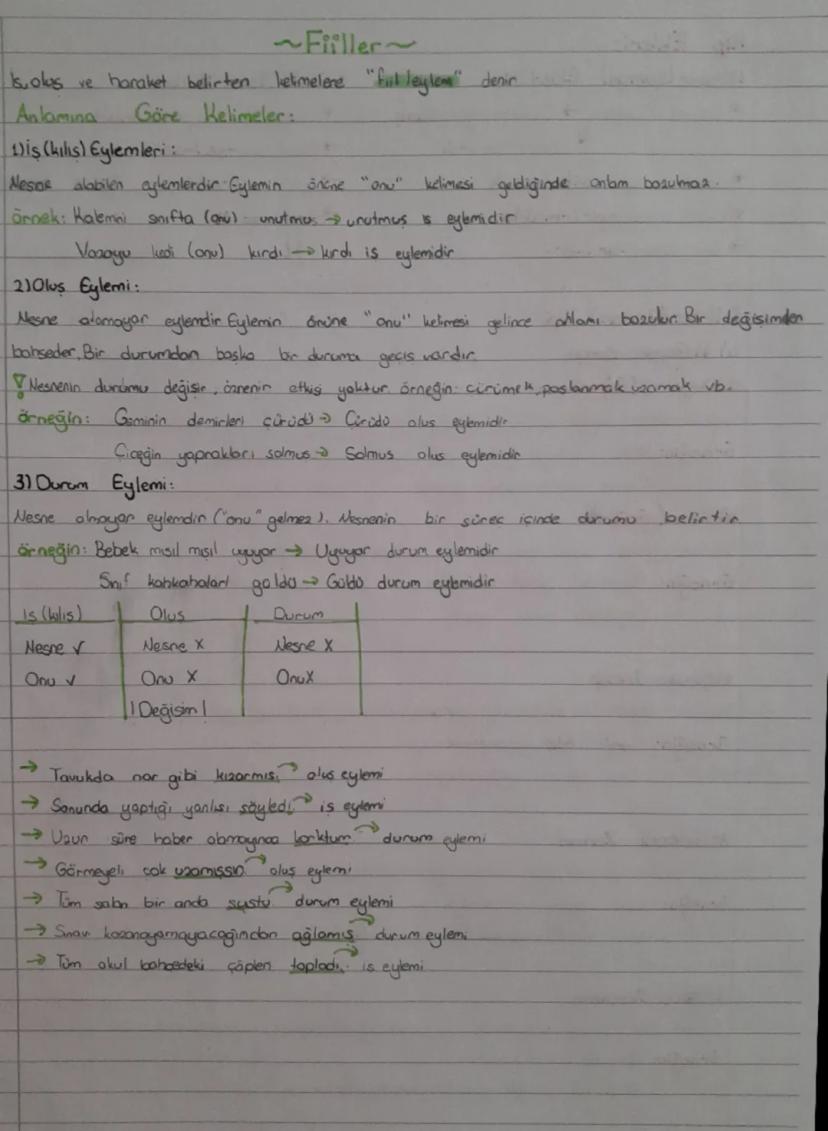 ~Fiiller~
İş, oluş ve haraket belirten kelimelere "fiil/eylem" denir
Anlamına Göre Kelimeler:
1) İş (kılış) Eylemleri:
Nesne alabilen eylemlerdir Eylemin önüne "onu" kelimesi geldiğinde anlam bozulmaz.
örnek: Kalemini sınıfta (onu) unutmuş → unutmuş iş eylemidir
Vazoyu kedi (onu) kırdı → kırdı iş eylemidir
2) Oluş Eylemi:
Nesne alamayar eylemdir Eylemin önüne "onu" kelimesi gelince anlamı bozulur. Bir değişimden
bahseder. Bir durumdan başka bir duruma geçiş vardır.
! Nesnenin durumu değişir, öznenin etkisi yoktur. örneğin: çürümek, paslanmak uzamak vb.
örneğin: Geminin demirleri çürüdü → Çürüdü oluş eylemidir
Çiçeğin yaprakları solmuş → Solmuş oluş eylemidir
3) Durum Eylemi:
Nesne almayar eylemdir ("onu" gelmez). Nesnenin bir süreç içinde durumu belirtir
örneğin: Bebek mışıl mışıl uyuyor → Uyuyor durum eylemidir
Sınıf kahkahaları güldü → Güldü durum eylemidir
İş (kılış) Oluş Durum
Nesne √ Nesne X Nesne X
Onu √ Onu X Onu X
! Değişim !
→ Tavukda nar gibi kızarmış. oluş eylemi
→ Sonunda yaptığı yanlışı söyledi. iş eylemi
→ Uzun süre haber alamayınca korktum durum eylemi
→ Görmeyeli çok uzamışsın oluş eylemi
→ Tüm salon bir anda sustu durum eylemi
→ Sınav kazanayamayacağından ağlamış durum eylemi
→ Tüm okul bahçedeki çöpleri topladı. iş eylemi